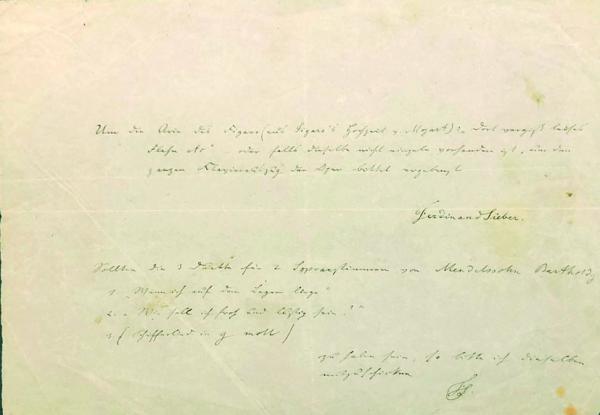 Um die Arie des Figaro (aus Figaro's Hochzeit v. Mozart): „Dort vergiß leises
Flehn etc" oder falls dieselbe nicht einzeln vorhanden ist, um den
ganzen Klavierauszug der Oper bittet ergebenst
Ferdinand Sieber.
Sollten die 3 Duette für 2 Sopranstimmen von Mendelssohn Bartholdy
1. „Wenn ich auf dem Lager liege"
2. „Wie soll ich froh und lustig sein?"
3. (Schifferlied in g moll)
zu haben sein, so bitte ich dieselben
mitzuschicken
FS.